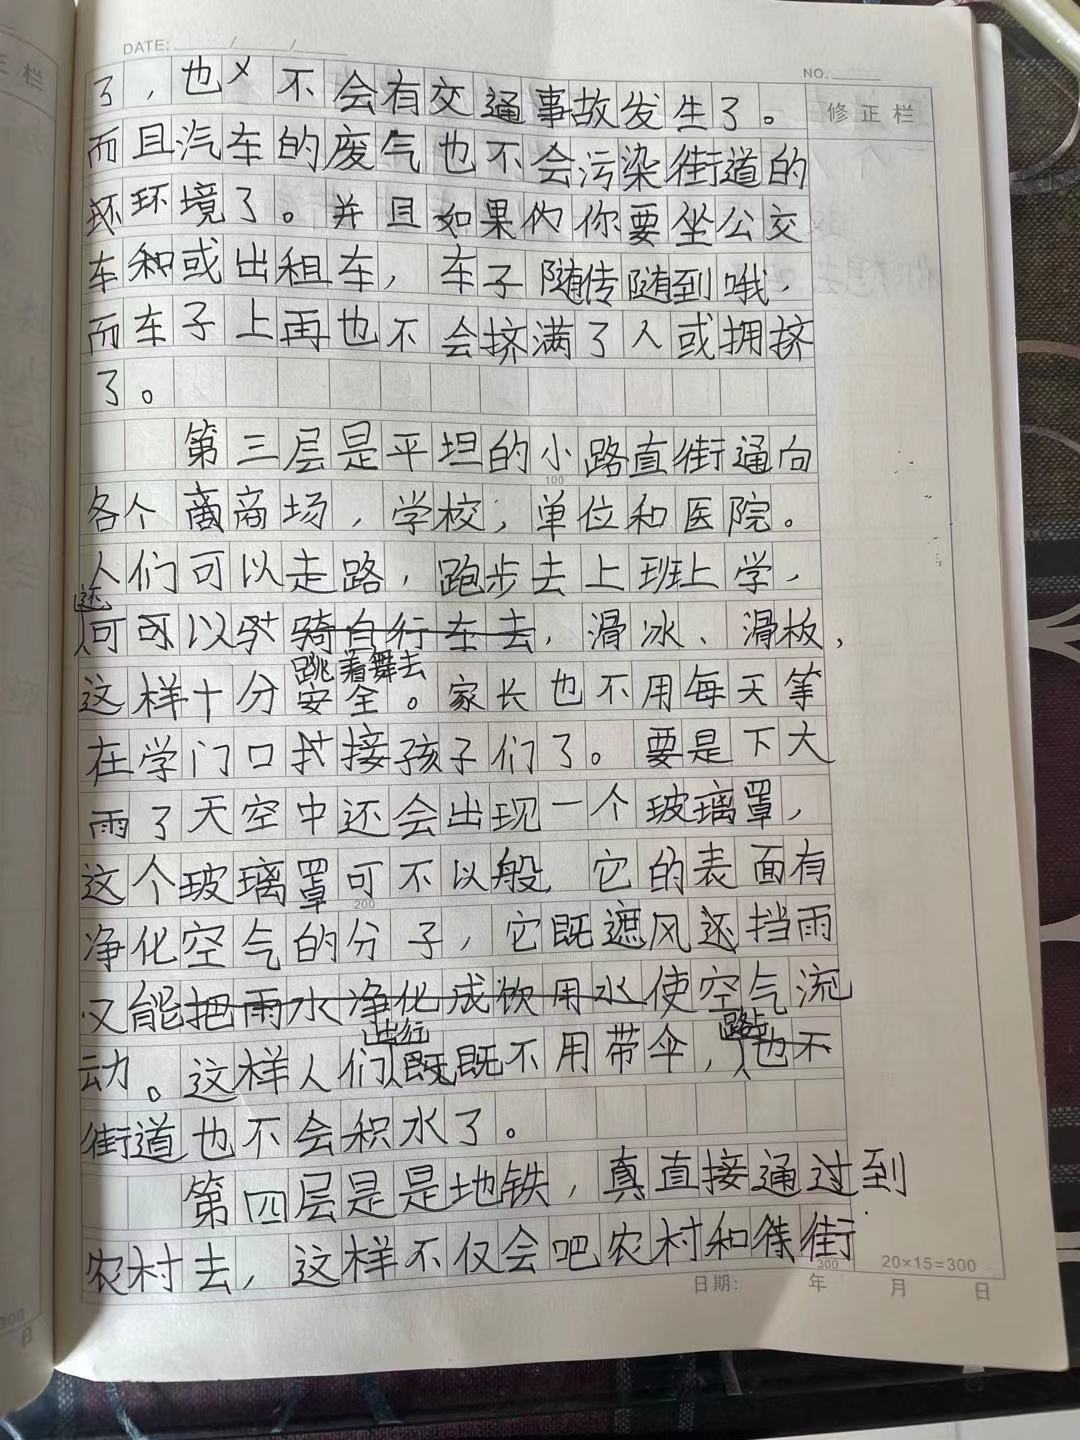 DATE: / /
NO.
三 栏
修 正 栏
了，也不会有交通事故发生了。
而且汽车的废气也不会污染街道的
环环境了。并且如果你你要坐公交
车和或出租车，车子随传随到哦，
而车子上再也不会挤满了人或拥挤
了。
第三层是平坦的小路直街通向
100
各个商商场，学校，单位和医院。
人们可以走路，跑步去上班上学，
还
可可以骑自行车去，滑冰、滑板，
跳着舞去
这样十分安全。家长也不用每天等
在学门口接孩子们了。要是下大
雨了天空中还会出现一个玻璃罩，
这个玻璃罩可不以般，它的表面有
200
净化空气的分子，它既遮风还挡雨
又能把雨水净化成饮用水使空气流
出行 路上
动。这样人们既既不用带伞，也不
街道也不会积水了。
第四层是是地铁，真直接通过到
农村去，这样不仅会吧农村和街
300
20×15=300
日期: 年 月 日
300
日